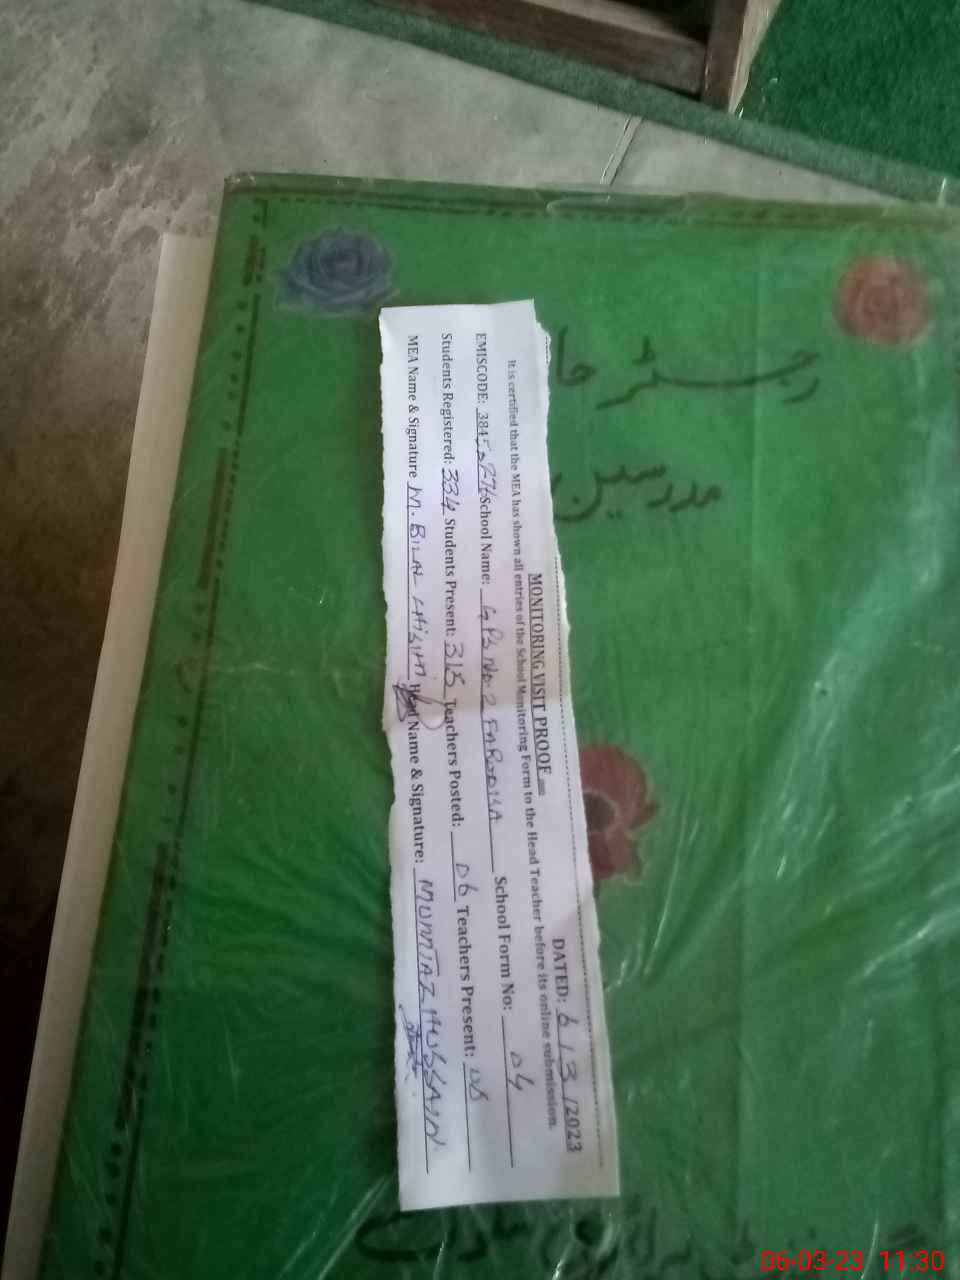 MONITORING VISIT PROOF DATED: 6/3/2023
It is certified that the MEA has shown all entries of the School Monitoring Form to the Head Teacher before its online submission.
EMISCODE: School Name: GPS No 2 FAROOKA School Form No: 04
Students Registered: 334 Students Present: 318 Teachers Posted: 06 Teachers Present: 06
MEA Name & Signature M. BILAL Name & Signature: MUMTAZ HUSSAIN
رجسٹر حا
مدرسین
06-03-23 11:30